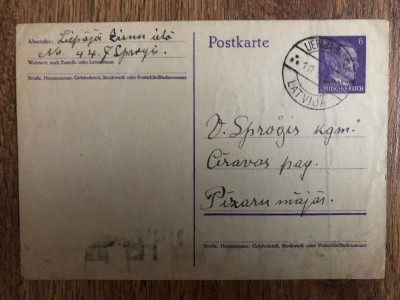 Absender: Liepājā Zivu ielā
No. 44. J Sproģis
Wohnort, auch Zustell- oder Leitpostamt
Straße, Hausnummer, Gebäudeteil, Stockwerk oder Postschließfachnummer
Postkarte
LATVIJA
6
DEUTSCHES REICH
V. Sproģis kgm.
Cīravas pag.
Pīzaru mājās.
Straße, Hausnummer, Gebäudeteil, Stockwerk oder Postschließfachnummer